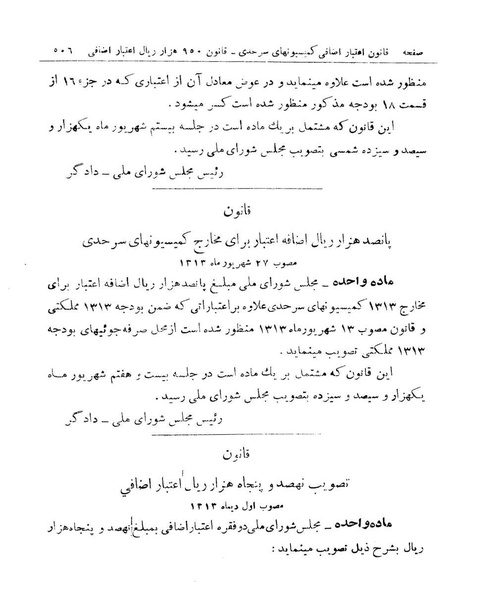 صفحه قانون اعتبار اضافی کمیسیونهای سرحدی ـ قانون ۹۵۰ هزار ریال اعتبار اضافی ۵۰۶
منظور شده است علاوه مینماید و در عوض معادل آن از اعتباری که در جزء ۱۶ از
قسمت ۱۸ بودجه مذکور منظور شده است کسر میشود .
این قانون که مشتمل بر یك ماده است در جلسه بیستم شهریور ماه یکهزار و
سیصد و سیزده شمسی بتصویب مجلس شورای ملی رسید .
رئیس مجلس شورای ملی ـ دادگر
قانون
پانصد هزار ریال اضافه اعتبار برای مخارج کمیسیونهای سرحدی
مصوب ۲۷ شهریور ماه ۱۳۱۳
ماده واحده ـ مجلس شورای ملی مبلغ پانصد هزار ریال اضافه اعتبار برای
مخارج ۱۳۱۳ کمیسیونهای سرحدی علاوه بر اعتباراتی که ضمن بودجه ۱۳۱۳ مملکتی
و قانون مصوب ۱۳ شهریور ماه ۱۳۱۳ منظور شده است از محل صرفه جوئیهای بودجه
۱۳۱۳ مملکتی تصویب مینماید .
این قانون که مشتمل بر یك ماده است در جلسه بیست و هفتم شهریور ماه
یکهزار و سیصد و سیزده بتصویب مجلس شورای ملی رسید .
رئیس مجلس شورای ملی ـ دادگر
قانون
تصویب نهصد و پنجاه هزار ریال اعتبار اضافی
مصوب اول دیماه ۱۳۱۳
ماده واحده ـ مجلس شورای ملی دو فقره اعتبار اضافی بمبلغ نهصد و پنجاه هزار
ریال بشرح ذیل تصویب مینماید :